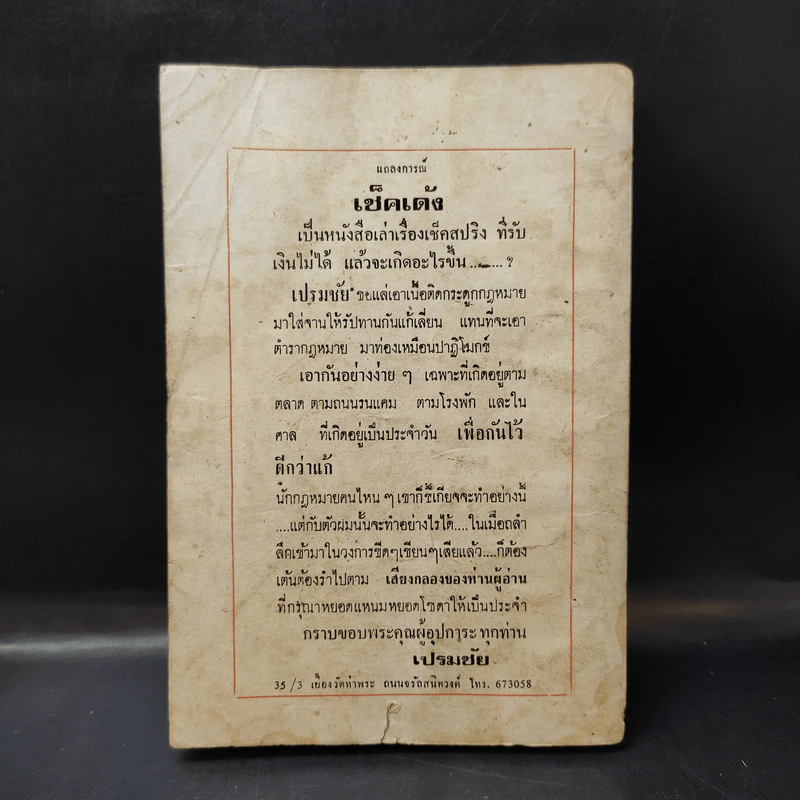 แถลงการณ์
เช็คเด้ง
เป็นหนังสือเล่าเรื่องเช็คสปริง ที่รับ
เงินไม่ได้ แล้วจะเกิดอะไรขึ้น ........ ?
เปรมชัย ขอแล่เอาเนื้อติดกระดูกกฎหมาย
มาใส่จานให้รับทานกันแก้เลี่ยน แทนที่จะเอา
ตำรากฎหมาย มาท่องเหมือนปาฏิโมกข์
เอากันอย่างง่าย ๆ เฉพาะที่เกิดอยู่ตาม
ตลาด ตามถนนรนแคม ตามโรงพัก และใน
ศาล ที่เกิดอยู่เป็นประจำวัน เพื่อกันไว้
ดีกว่าแก้
นักกฎหมายคนไหน ๆ เขาก็ขี้เกียจจะทำอย่างนี้
....แต่กับตัวผมนั้นจะทำอย่างไรได้....ในเมื่อถลำ
ลึกเข้ามาในวงการขีดๆเขียนๆเสียแล้ว....ก็ต้อง
เต้นต้องรำไปตาม เสียงกลองของท่านผู้อ่าน
ที่กรุณาหยอดแหนมหยอดโซดาให้เป็นประจำ
กราบขอบพระคุณผู้อุปการะทุกท่าน
เปรมชัย
35/3 เยื้องวัดท่าพระ ถนนจรัลสนิทวงศ์ โทร. 673058